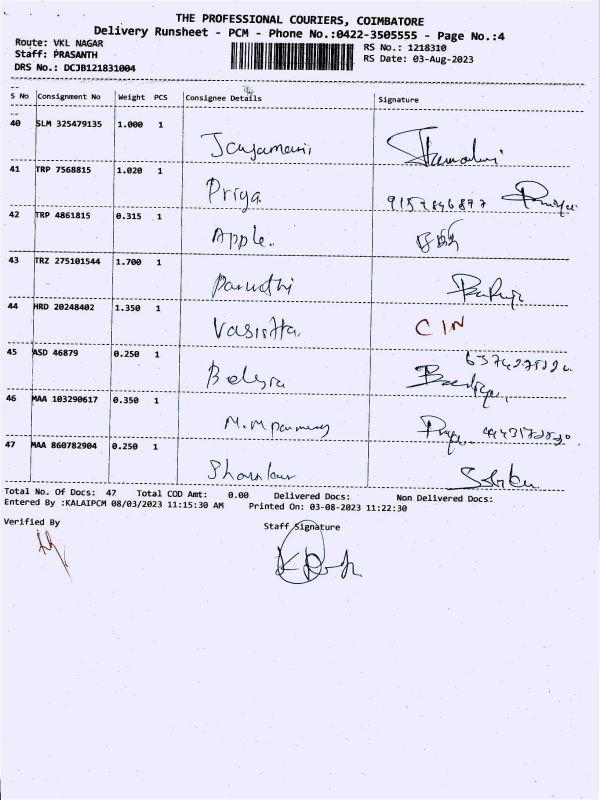 THE PROFESSIONAL COURIERS, COIMBATORE
Delivery Runsheet - PCM - Phone No.:0422-3505555 - Page No.:4
Route: VKL NAGAR
Staff: PRASANTH
DRS No.: DCJB121831004
RS No.: 1218310
RS Date: 03-Aug-2023
S No Consignment No Weight PCS Consignee Details Signature
40 SLM 325479135 1.000 1
41 TRP 7568815 1.020 1 Priya
42 TRP 4861815 0.315 1 Apple.
43 TRZ 275101544 1.700 1 Paruthi
44 HRD 20248402 1.350 1 Vasistta. CIN
45 ASD 46879 0.250 1
46 MAA 103290617 0.350 1
47 MAA 860782904 0.250 1 Shankar
Total No. Of Docs: 47 Total COD Amt: 0.00 Delivered Docs: Non Delivered Docs:
Entered By :KALAIPCM 08/03/2023 11:15:30 AM Printed On: 03-08-2023 11:22:30
Verified By Staff Signature